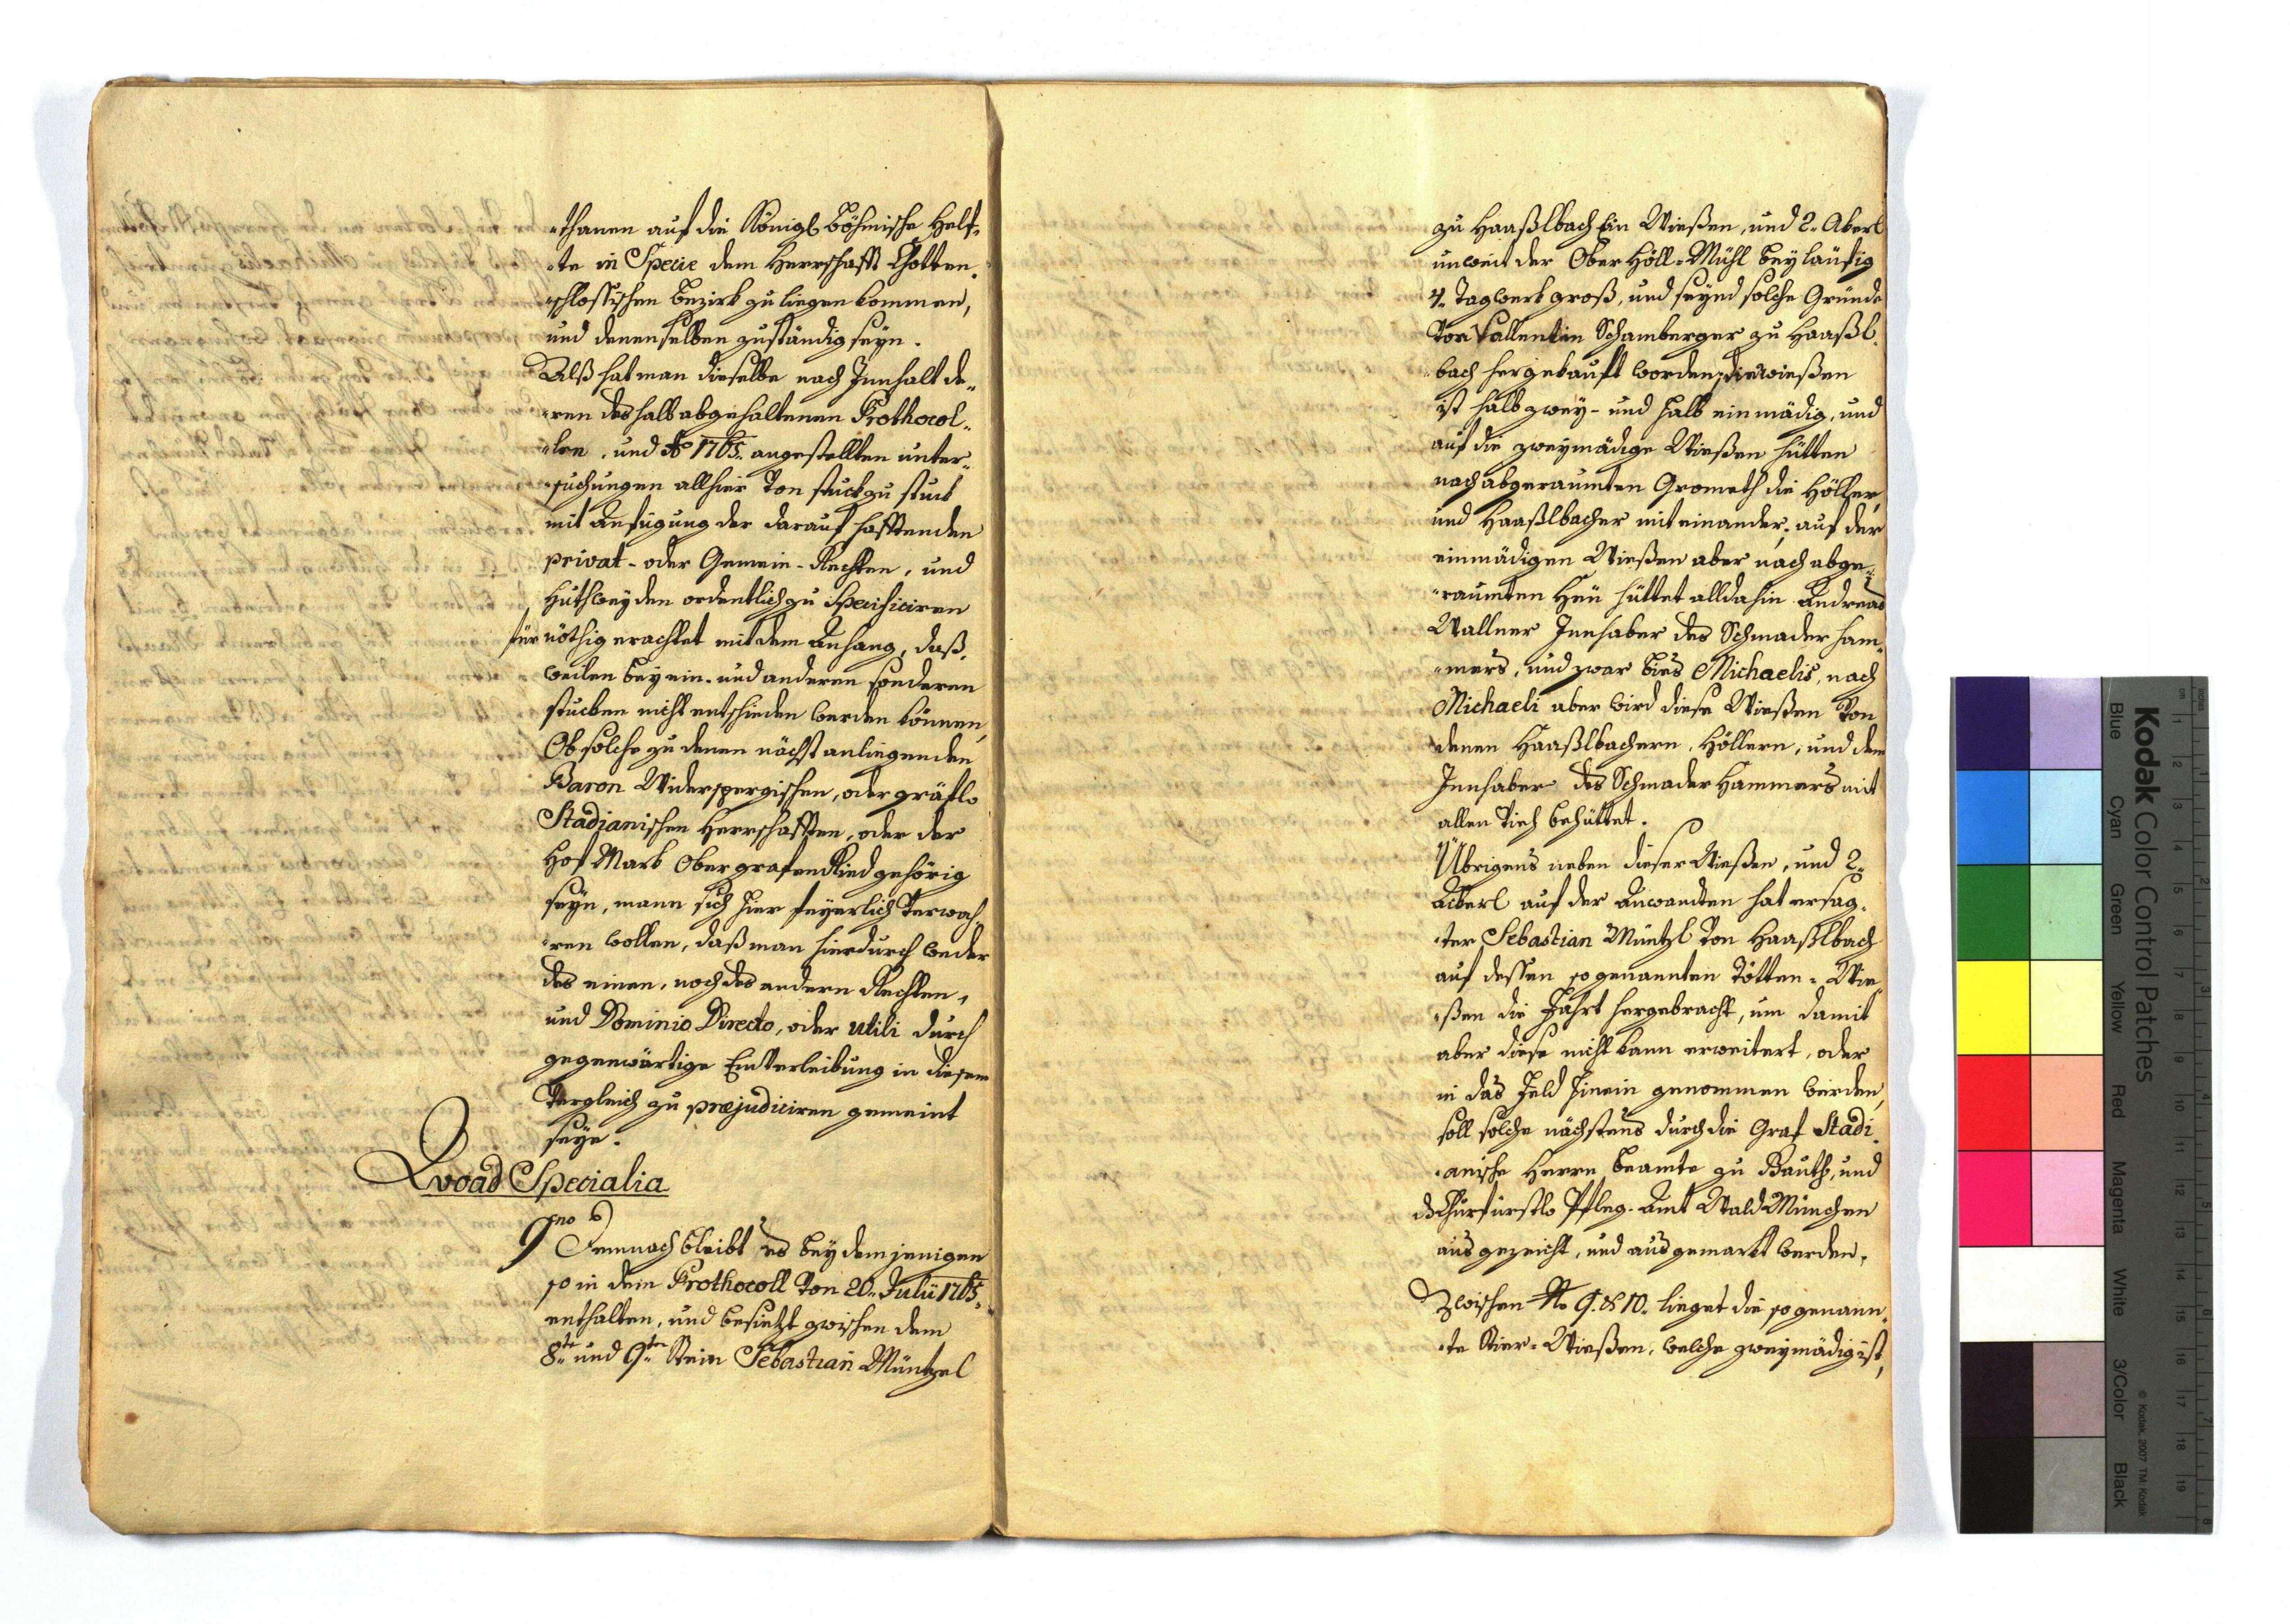 -thanen auf die Königl Böhmische Helf-
-te in Specie dem Herrschafft Chotten-
-schlossischen bezirk zu liegen kommen,
und denenselben zuständig seyn.
Alß hat man dieselbe nach Innhalt de-
-ren deshalb abgehaltenen Prothocol-
-len, und Ao 1765. angestellten unter-
-suchungen allhier von stuck zu stuck
mit Anfügung der darauf hafftenden
privat- oder Gemein-Rechten, und
Huthweyden ordentlich zu Specificiren
für nöthig erachtet mit dem Anhang, daß,
weilen bey ein- und anderen sonderen
stucken nicht entschieden werden können,
Ob solche zu denen nächst anliegenden
Baron Widerspergischen, oder gräflo
Stadianischen Herrschafften, oder der
Hof Mark Obergrafenried gehörig
seyn, mann sich hier feyerlich verwah-
-ren wollen, daß man hierdurch weder
des einen, noch des andern Rechten,
und Dominio Directo, oder utili durch
gegenwärtige Einverleibung in diesem
Vergleich zu præjudiciren gemeint
seye.
Qvoad Specialia
9no Demnach bleibt es bey demjenigen
so in dem Prothocoll von 20. Julii 1765.
enthalten, und besitzt zwischen dem
8te und 9ten Stein Sebastian Müntzel
zu Haaßlbach Ein Wießen, und 2. Äkerl
unweit der Ober Höll-Mühl beyläufig
4. Tagwerk groß, und seynd solche Gründe
von Vallentin Schamberger zu Haaßl-
-bach hergekauft worden, die wießen
ist halb zwey- und halb einmädig, und
auf die zweymädige Wießen hütten
nach abgeraumten Grometh die Höller,
und Haaßlbacher miteinander, auf der
einmädigen Wießen aber nach abge-
-raumten Heu hüttet alldahin Andreas
Wallner Innhaber des Schmader Ham-
-mers, und zwar bies Michaelis, nach
Michaeli aber wird diese Wießen von
denen Haaßlbachern, Höllern, und dem
Innhaber des Schmader Hammers mit
allen Vieh behüttet.
Übrigens neben dieser Wießen, und 2.
Äkerl auf der Anwandten hat ersag-
-ter Sebastian Müntzl von Haaßlbach
auf dessen so genannten Tötten-Wie-
-ßen die Fahrt hergebracht, um damit
aber diese nicht kann erweitert, oder
in das Feld hinein genommen werden,
soll solche nächstens durch die Graf Stadi-
-anische Herrn beamte zu Kauth, und
ds Churfürstlo Pfleg-Amt Wald München
ausgezeicht, und ausgemarkt werden.
Zwischen No 9. & 10. lieget die so genann-
-te Stier-Wießen, welche zweymädig ist,
Kodak Color Control Patches
Blue
Cyan
Green
Yellow
Red
Magenta
White
3/Color
Black
© Kodak, 2007 TM: Kodak